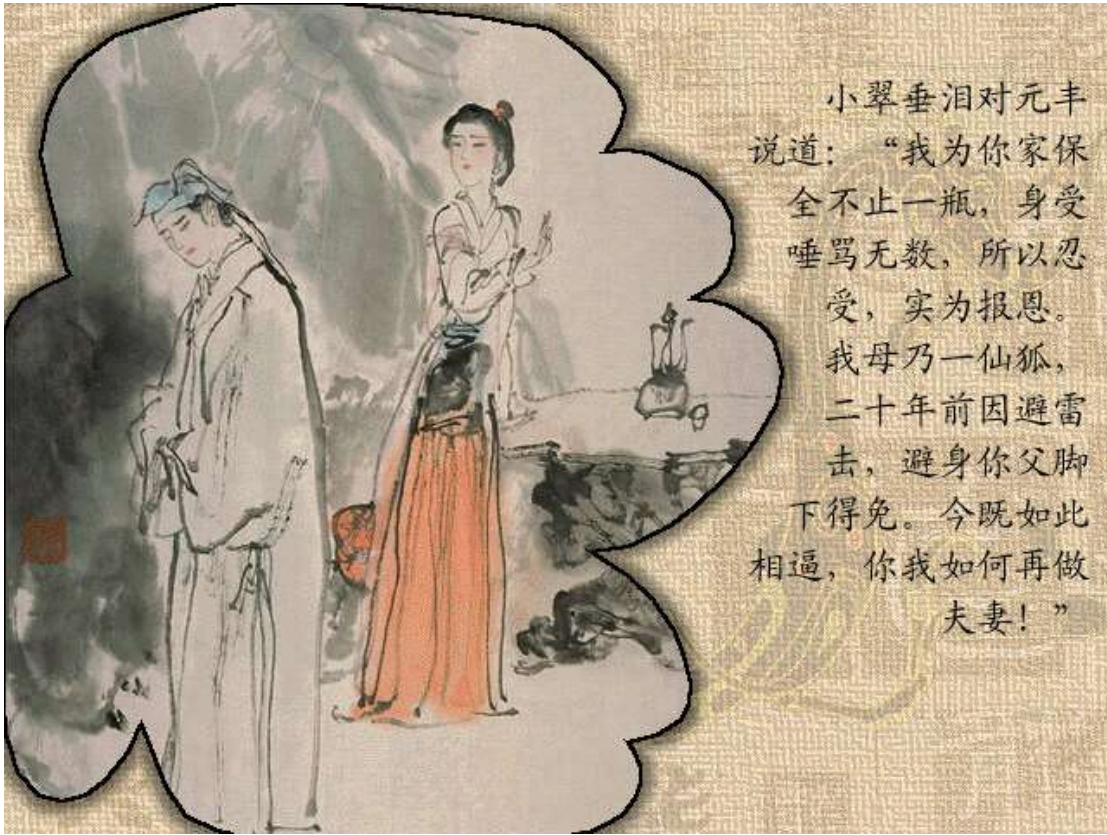 小翠垂泪对元丰
说道：“我为你家保
全不止一瓶，身受
唾骂无数，所以忍
受，实为报恩。
我母乃一仙狐，
二十年前因避雷
击，避身你父脚
下得免。今既如此
相逼，你我如何再做
夫妻！”